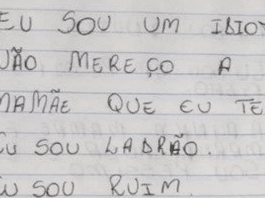 EU SOU UM IDIOT
NÃO MEREÇO A
MAMÃE QUE EU TE
EU SOU LADRÃO.
EU SOU RUIM.